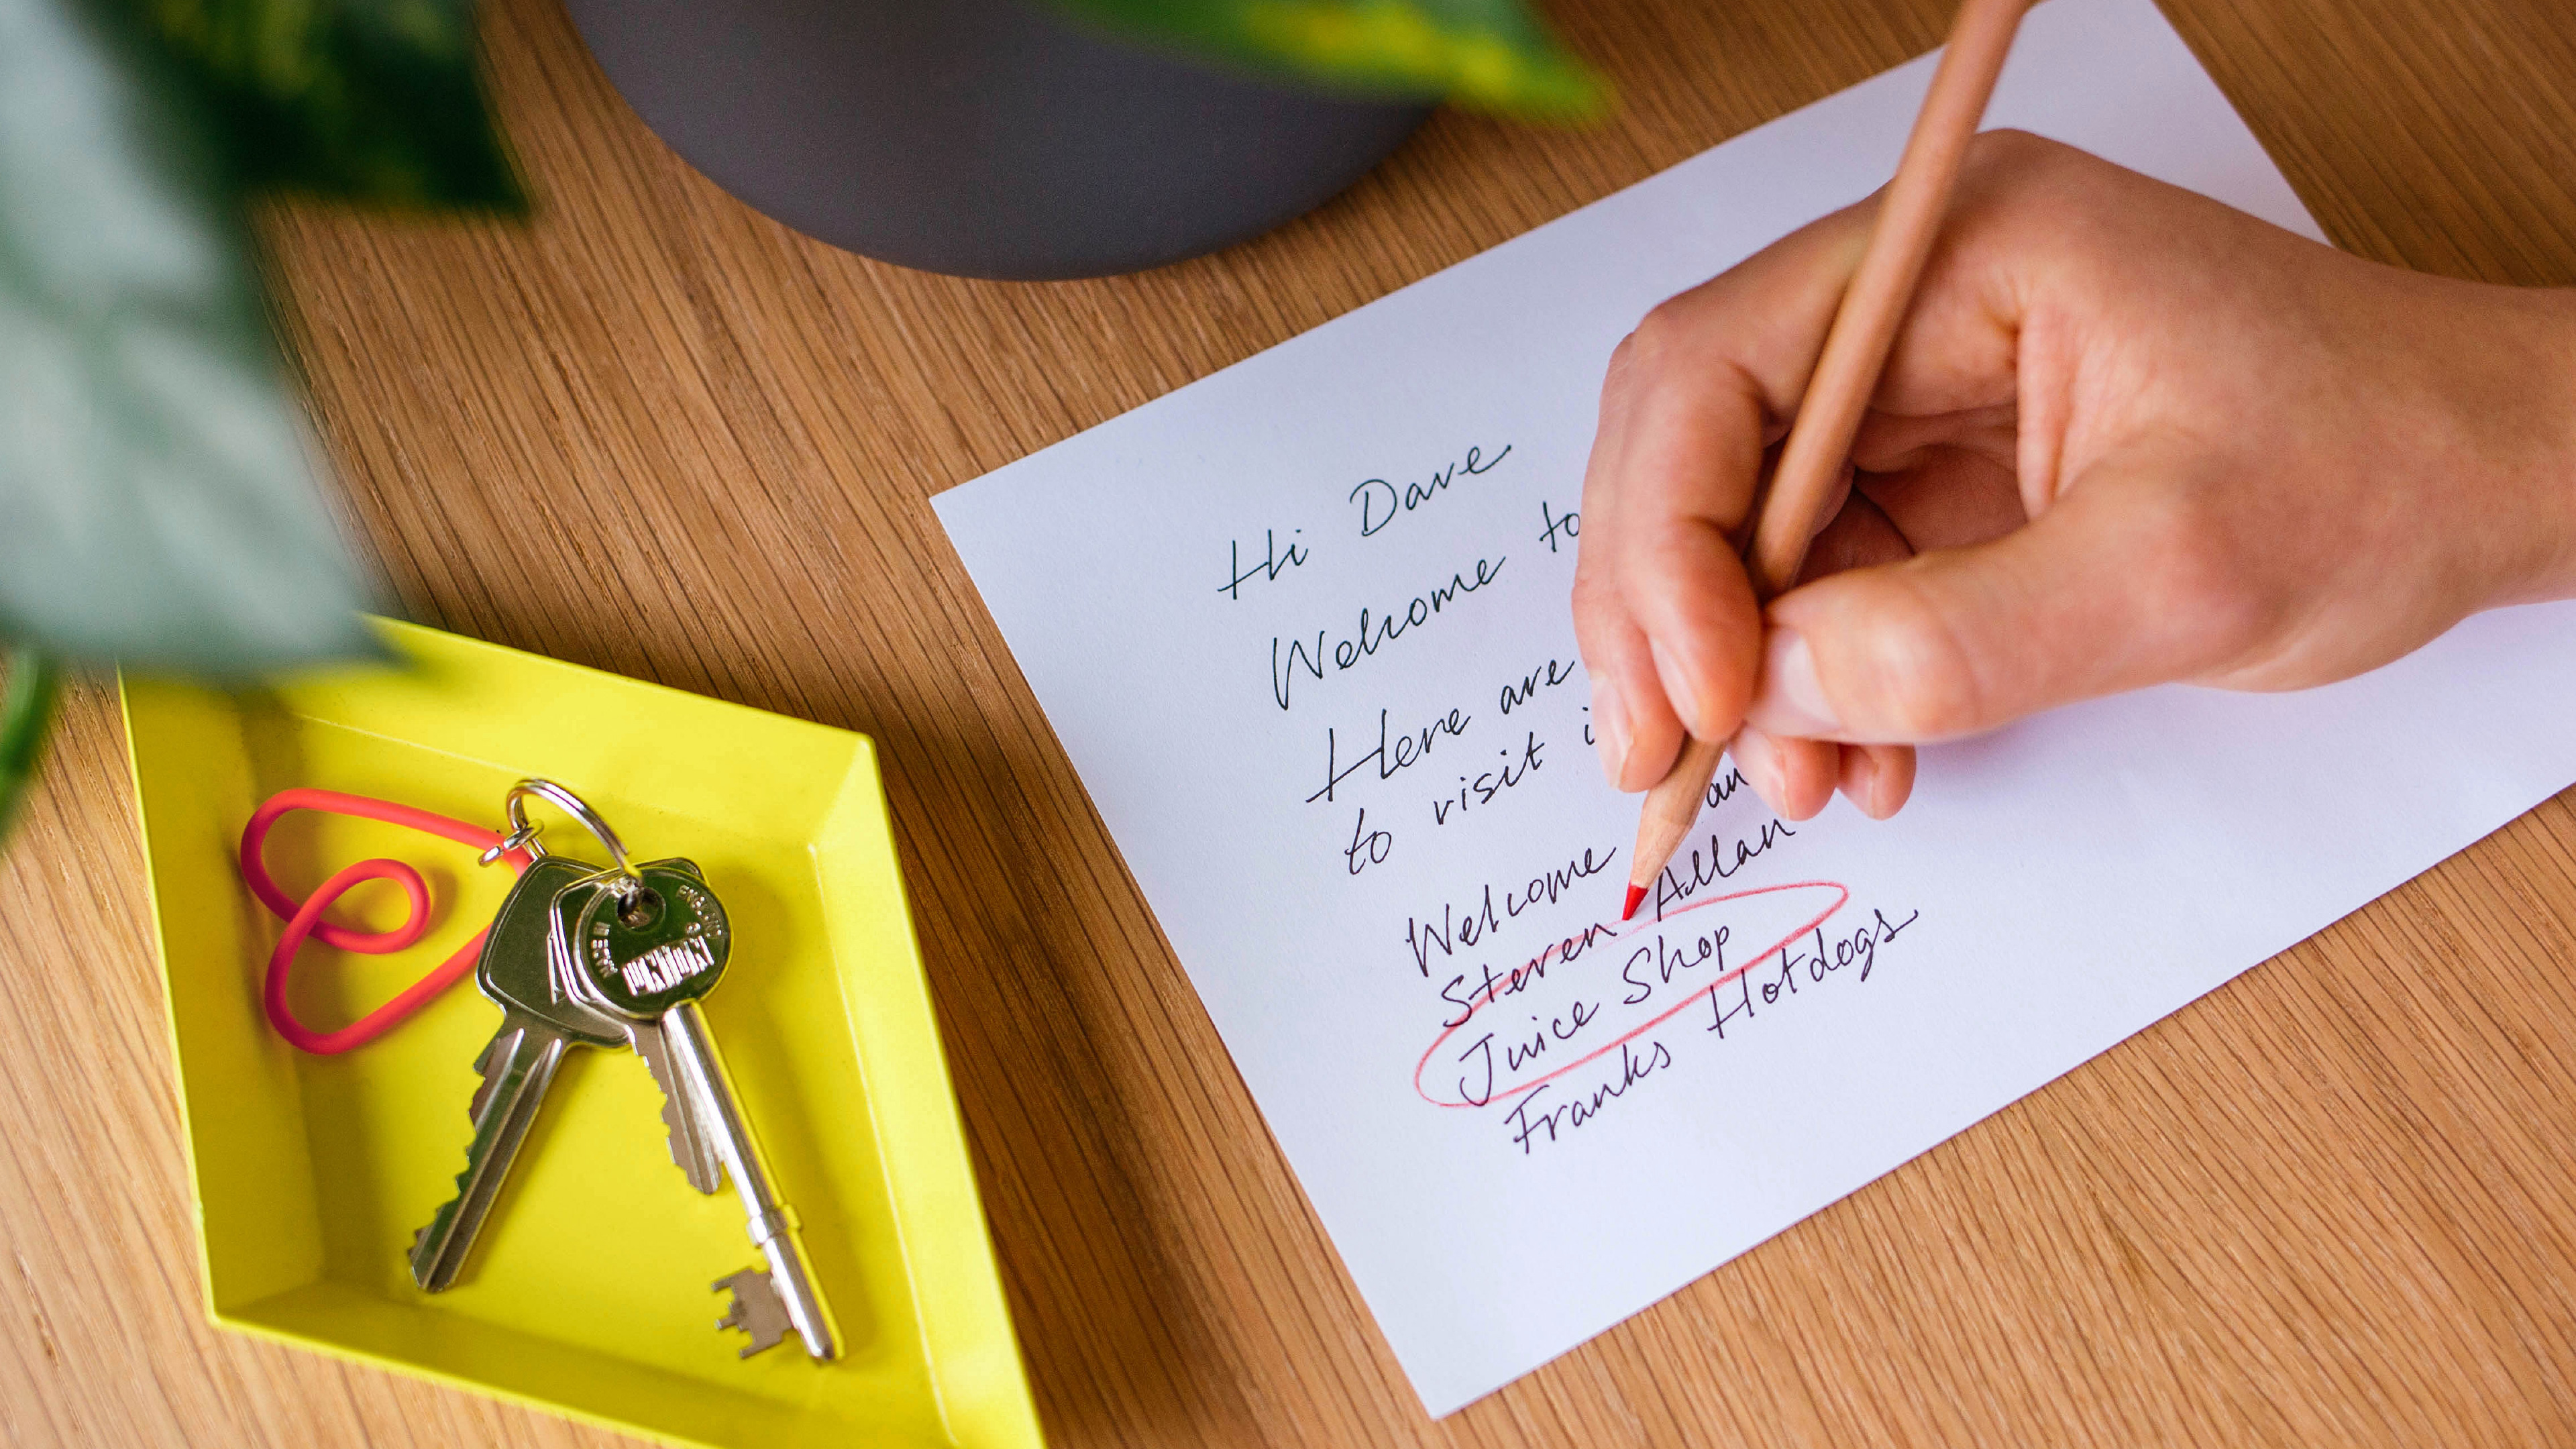 Hi Dave
Welcome to
Here are
to visit i
Welcome an
Steven Allan
Juice Shop
Franks Hotdogs